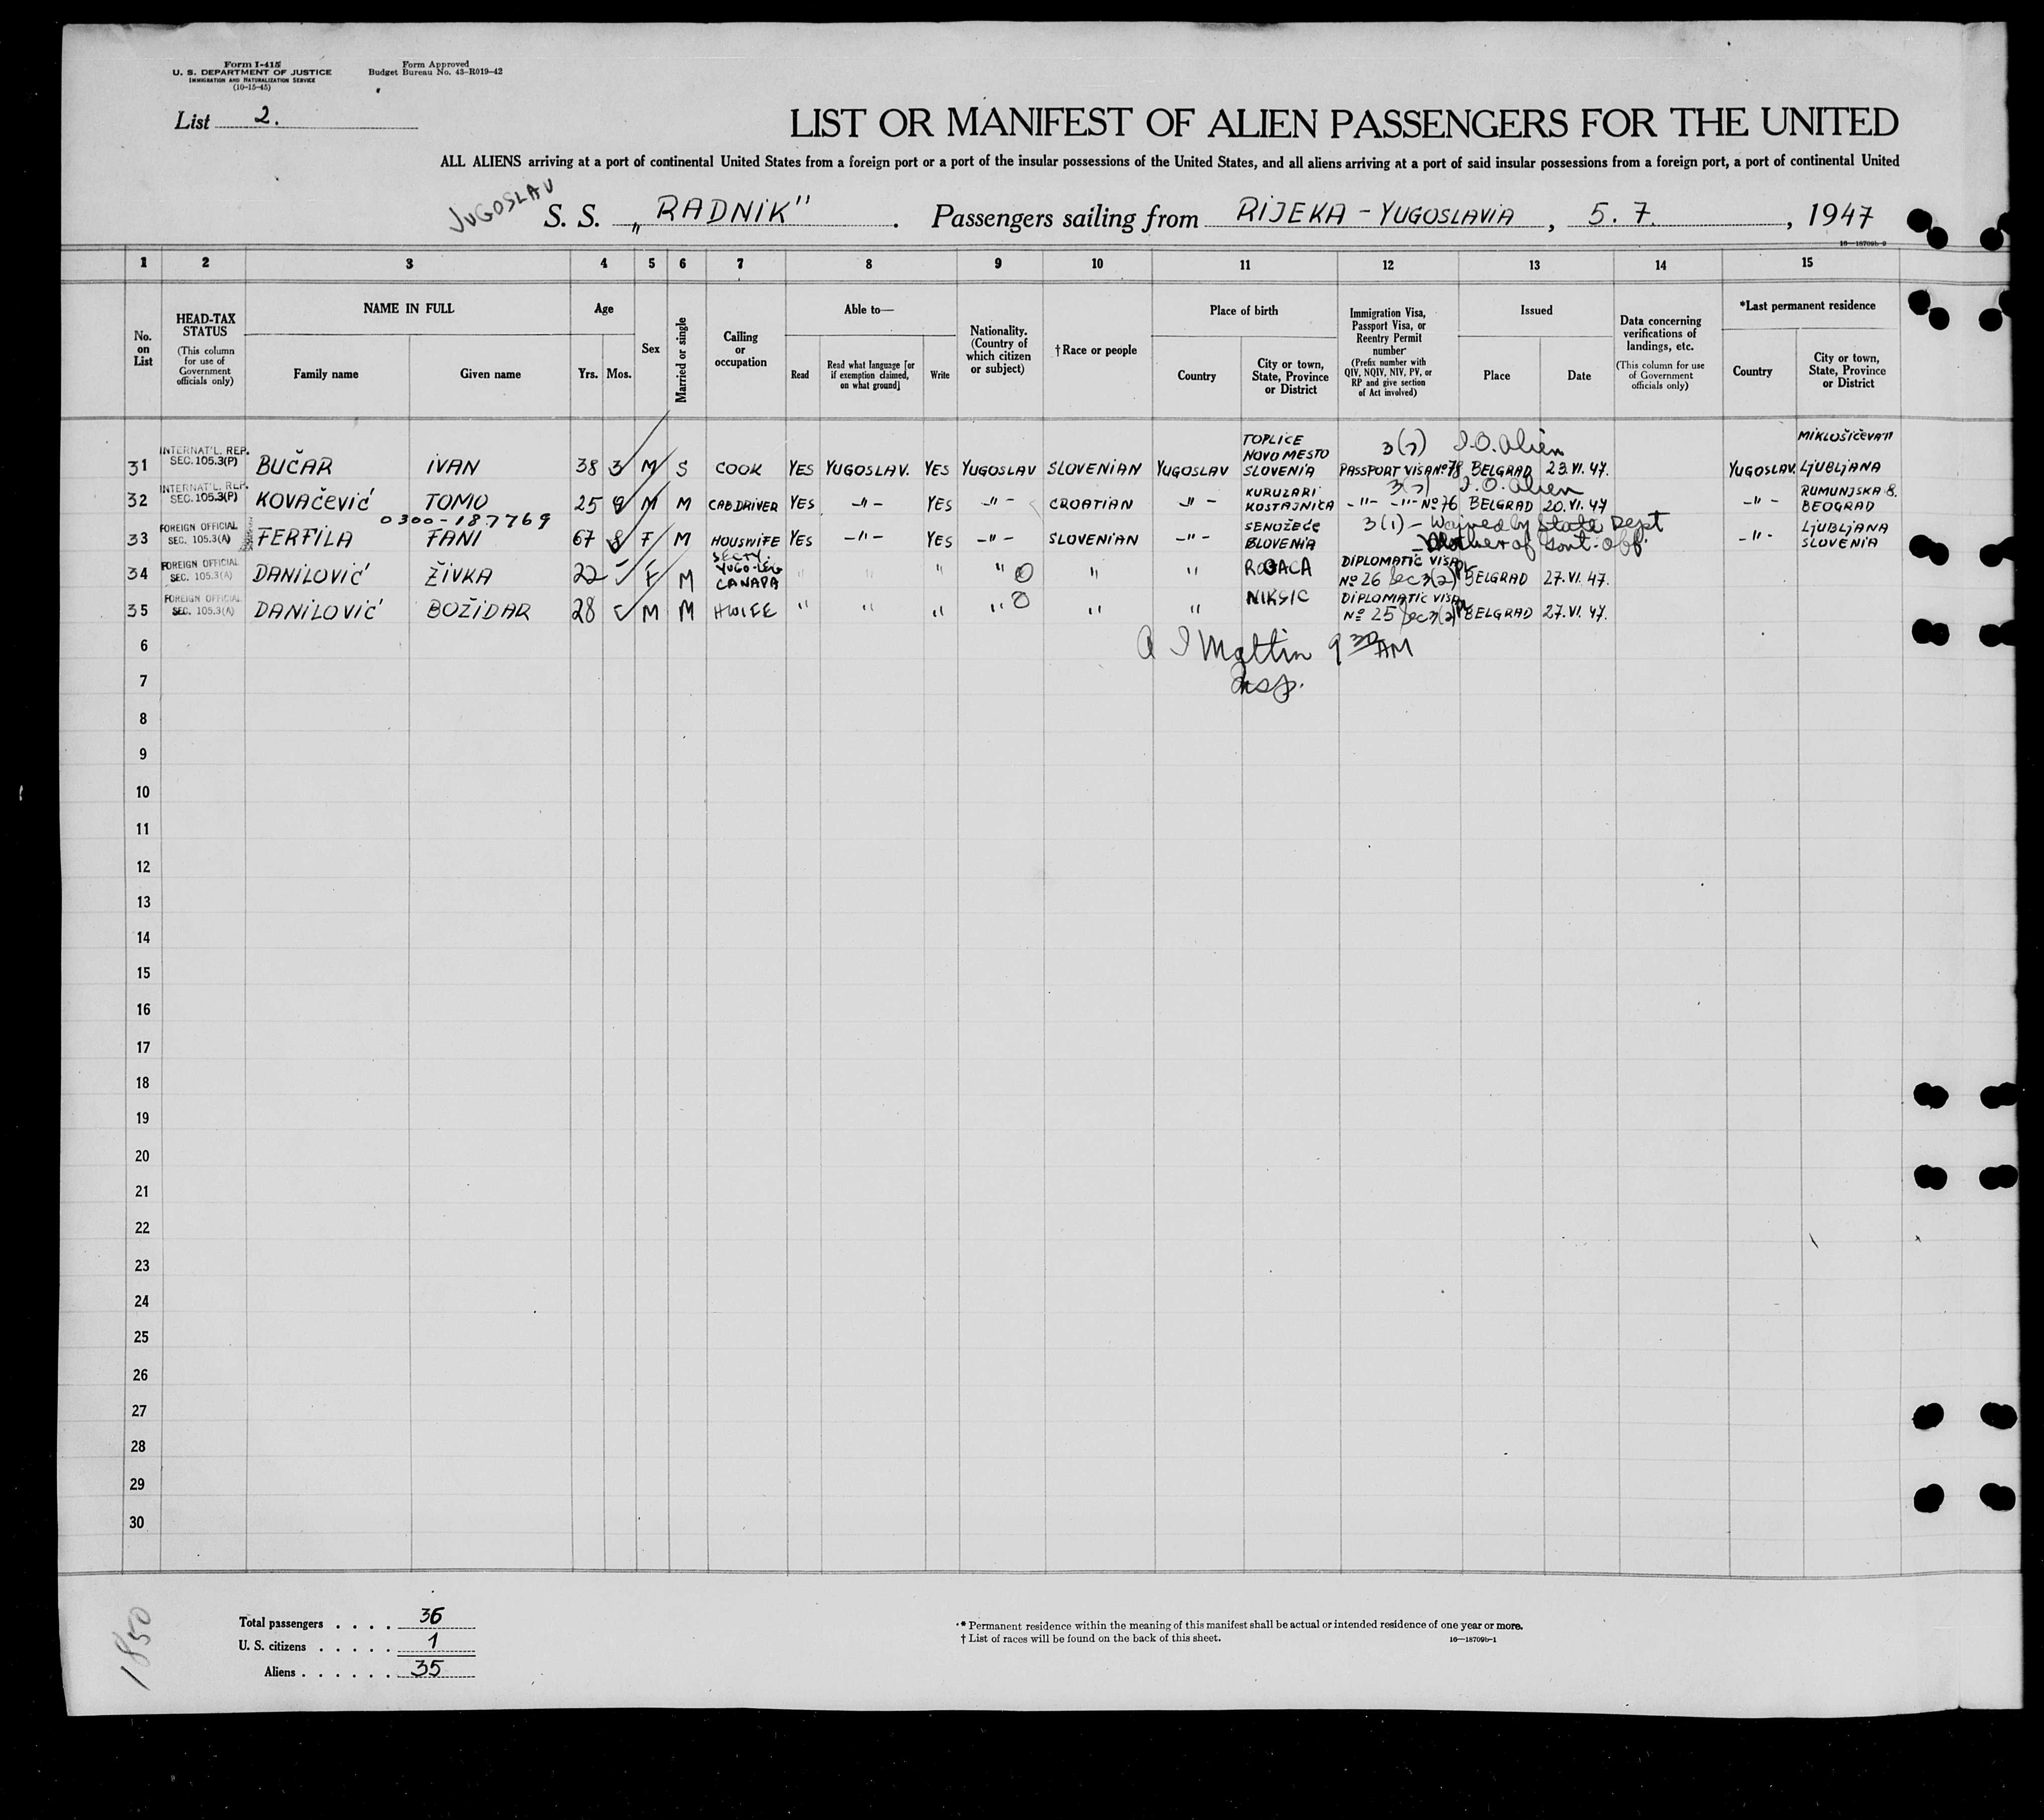 Form I-415
U. S. DEPARTMENT OF JUSTICE
IMMIGRATION AND NATURALIZATION SERVICE
(10-15-45)
Form Approved
Budget Bureau No. 43-R019-42
List 2.
LIST OR MANIFEST OF ALIEN PASSENGERS FOR THE UNITED
ALL ALIENS arriving at a port of continental United States from a foreign port or a port of the insular possessions of the United States, and all aliens arriving at a port of said insular possessions from a foreign port, a port of continental United
JUGOSLAV S. S. „RADNIK" . Passengers sailing from RIJEKA - YUGOSLAVIA , 5. 7. , 1947
16—18709b-2
1 2 3 4 5 6 7 8 9 10 11 12 13 14 15
No. on List
HEAD-TAX STATUS
(This column for use of Government officials only)
NAME IN FULL
Family name
Given name
Age
Yrs.
Mos.
Sex
Married or single
Calling or occupation
Able to—
Read
Read what language [or if exemption claimed, on what ground]
Write
Nationality. (Country of which citizen or subject)
†Race or people
Place of birth
Country
City or town, State, Province or District
Immigration Visa, Passport Visa, or Reentry Permit number
(Prefix number with QIV, NQIV, NIV, PV, or RP and give section of Act involved)
Issued
Place
Date
Data concerning verifications of landings, etc.
(This column for use of Government officials only)
*Last permanent residence
Country
City or town, State, Province or District
INTERNAT'L. REP. TOPLICE NOVO MESTO 3(7) I.O. Alien MIKLOŠIČEVA 11
31 SEC. 105.3(P) BUČAR IVAN 38 3 M S COOK YES YUGOSLAV. YES YUGOSLAV SLOVENIAN YUGOSLAV SLOVENIA PASSPORT VISA Nº 78 BELGRAD 23.VI.47. YUGOSLAV. LJUBLJANA
INTERNAT'L. REP. KURUZARI 3(7) I.O. Alien RUMUNJSKA 8.
32 SEC. 105.3(P) KOVAČEVIĆ TOMO 25 M M CAB DRIVER YES -"- YES -"- CROATIAN -"- KOSTAJNICA -"- -"- Nº 76 BELGRAD 20.VI.47 -"- BEOGRAD
0300-187769
FOREIGN OFFICIAL SENOŽEČE 3(1) - Waived by State Dept LJUBLJANA
33 SEC. 105.3(A) FERFILA FANI 67 8 F M HOUSWIFE YES -"- YES -"- SLOVENIAN -"- SLOVENIA - Mother of Govt. Off. -"- SLOVENIA
FOREIGN OFFICIAL SECTY. YUGO-LEG DIPLOMATIC VISA
34 SEC. 105.3(A) DANILOVIĆ ŽIVKA 22 F M CANADA " " " " " " Nº 26 Sec 3(2) BELGRAD 27.VI.47.
FOREIGN OFFICIAL NIKSIC DIPLOMATIC VISA
35 SEC. 105.3(A) DANILOVIĆ BOŽIDAR 28 M M HWIFE " " " " " " Nº 25 Sec 3(2) BELGRAD 27.VI.47.
6
9 30 AM
7 Insp.
8
9
10
11
12
13
14
15
16
17
18
19
20
21
22
23
24
25
26
27
28
29
30
1850
Total passengers . . . . 36
U. S. citizens . . . . . 1
Aliens . . . . . . 35
* Permanent residence within the meaning of this manifest shall be actual or intended residence of one year or more.
† List of races will be found on the back of this sheet.
16—18709b-1